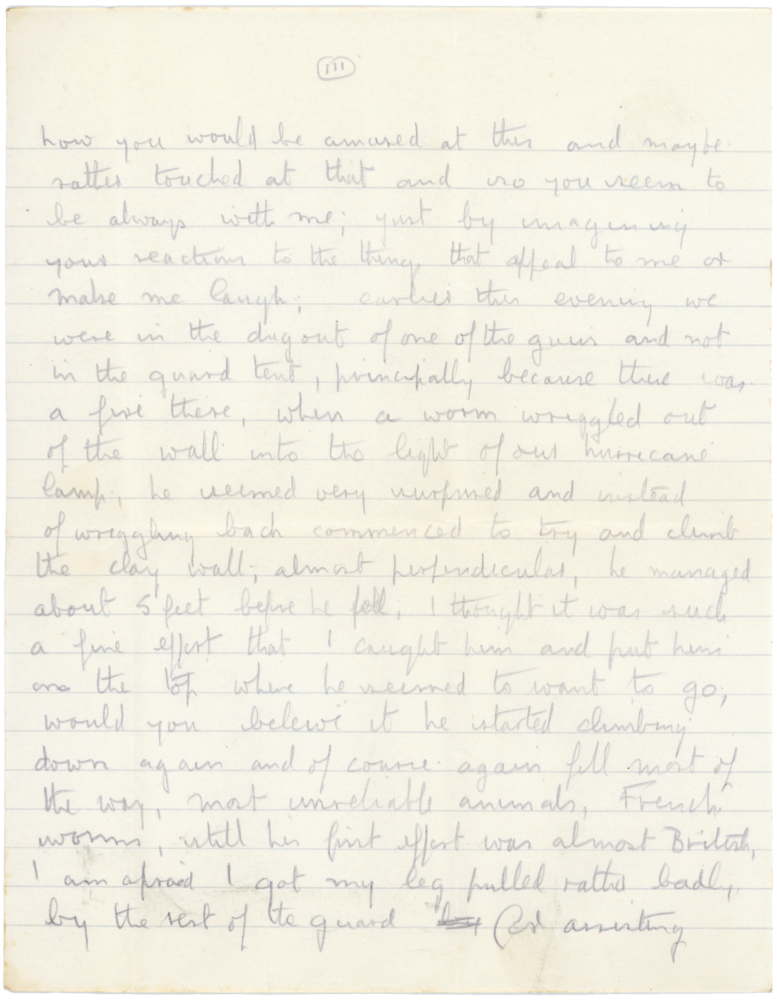 III
how you would be amused at this and maybe
rather touched at that and so you seem to
be always with me; just by imagining
your reactions to the things that appeal to me or
make me laugh; earlier this evening we
were in the dugout of one of the guns and not
in the guard tent, principally because there was
a fire there, when a worm wriggled out
of the wall into the light of our hurricane
lamp; he seemed very surprised and instead
of wriggling back commenced to try and climb
the clay wall; almost perpendicular, he managed
about 5 feet before he fell; I thought it was such
a fine effort that I caught him and put him
on the top where he seemed to want to go;
would you believe it he started climbing
down again and of course again fell most of
the way, most unreliable animals, French
worms, still his first effort was almost British,
I am afraid I got my leg pulled rather badly
by the rest of the guard (for assisting